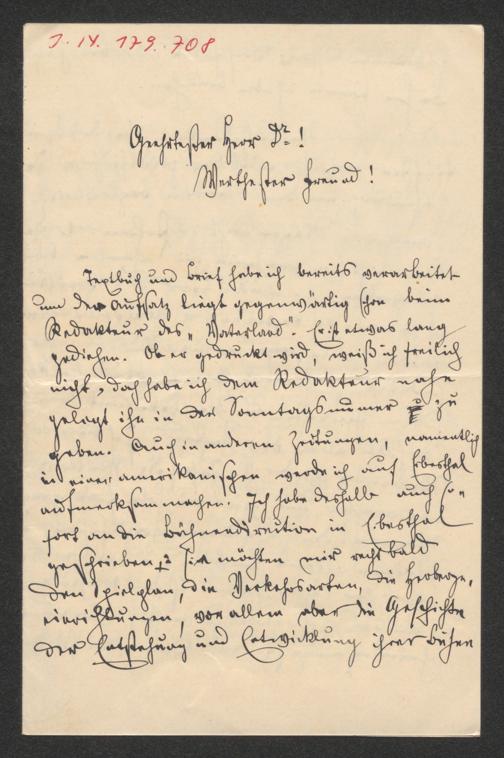 J. N. 179.708
Geehrtester Herr Dr!
Werthester Freund!
Textbuch und Brief habe ich bereits verarbeitet
und der Aufsatz liegt gegenwärtig schon beim
Redakteur des „Vaterland". Er ist etwas lang
gediehen. Ob er gedruckt wird, weiß ich freilich
nicht, doch habe ich dem Redakteur nahe
gelegt ihn in der Sonntagsnummer zu
geben. Auch in anderen Zeitungen, namentlich
in einer amerikanischen werde ich auf Erbesthal
aufmerksam machen. Ich habe deshalb auch so=
fort an die Bühnendirection in Erbesthal
geschrieben, sie möchten mir recht bald
den Spielplan, die Verkehrsarten, die Herberge,
einrichtungen, vor allem aber die Geschichte
der Entstehung und Entwicklung ihrer Bühne